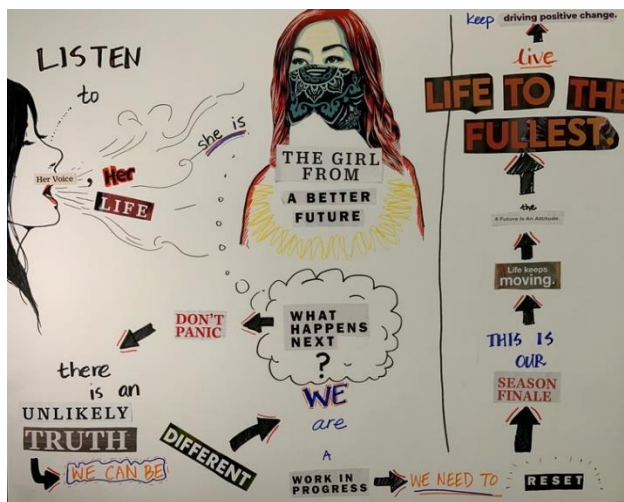 LISTEN
to
Her Voice, Her
LIFE
she is
THE GIRL
FROM
A BETTER
FUTURE
WHAT
HAPPENS
NEXT
?
DON'T
PANIC
there
is an
UNLIKELY
TRUTH
WE CAN BE
DIFFERENT
WE
are
A
WORK IN
PROGRESS
WE NEED TO
RESET
SEASON
FINALE
THIS IS
OUR
Life keeps
moving.
the
Future Is An Attitude
LIFE TO THE
FULLEST.
live
keep driving positive change.